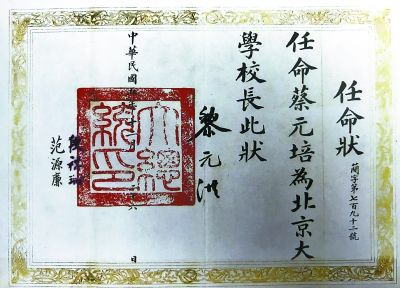 任命狀
簡字第七百九十二號
任命蔡元培為北京大
學校長此狀
黎元洪
大總統印
中華民國 六 日
范源廉